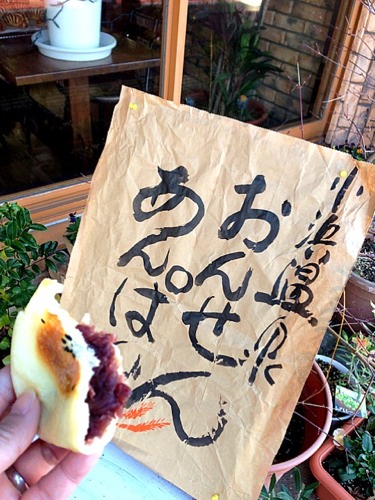 小浜温泉
おんせん
あんぱん